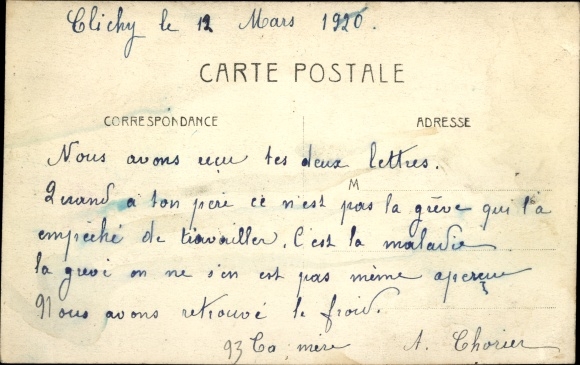 Clichy le 12 Mars 1920.
CARTE POSTALE
CORRESPONDANCE
ADRESSE
Nous avons reçu tes deux lettres.
M
Quand a ton père ce n'est pas la grève qui l'a
empêché de travailler. C'est la maladie
la grève on ne s'en est pas même aperçue
Nous avons retrouvé le froid.
93 Ta mère A. Thorier